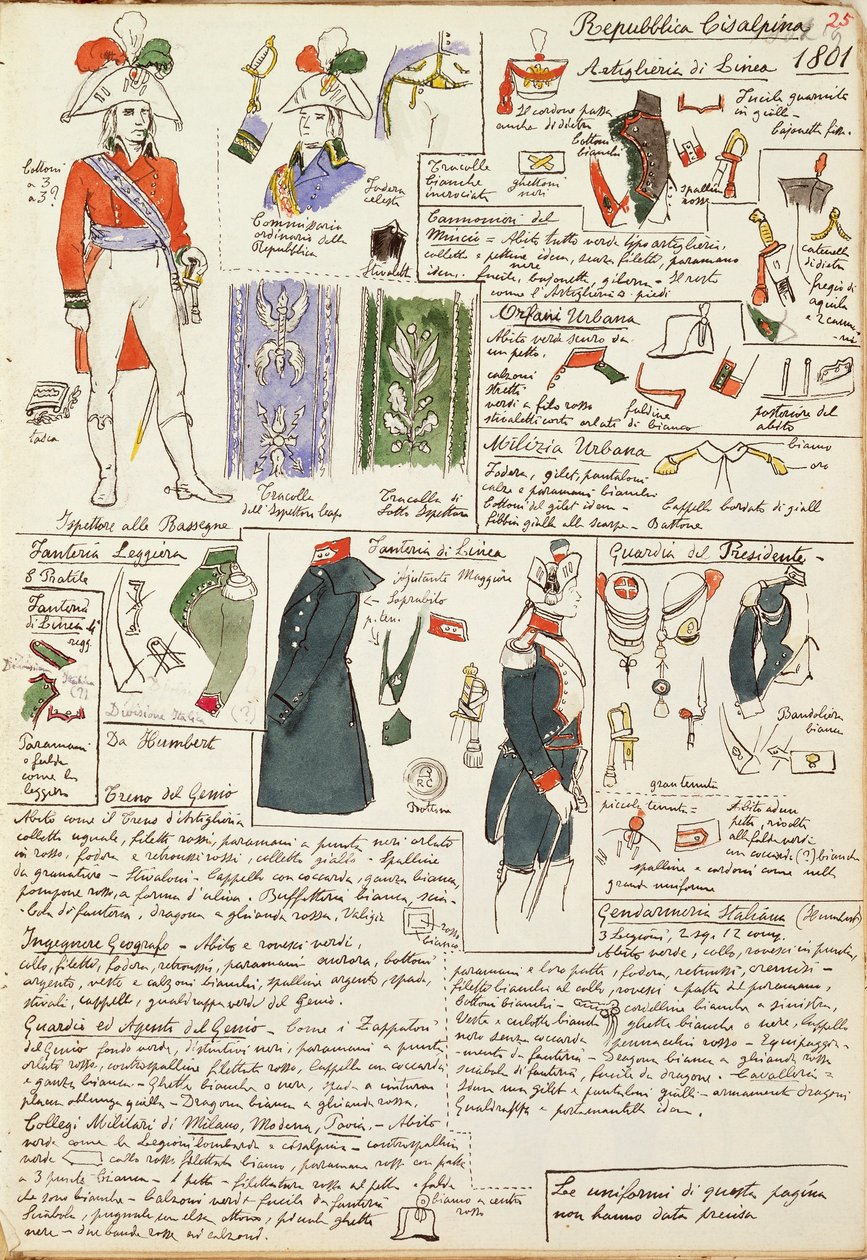 Repubblica Cisalpina 25
1801
Artiglieria di Linea
Il cordone passa
anche di dietro
Bottoni
bianchi
Fucile guarnito
in giallo -
bajonetta fissa.
Bottoni
a 3
a 3?
Commissario
ordinario della
Repubblica
Fodera
celeste
Stivaletti
Tracolle
bianche
incrociate
ghettoni
neri
spalline
rosse
catenella
di dietro
fregio di
aquila
e 2 cannoni
Cannonieri del
Mincio = Abito tutto verde tipo artiglieria,
colletto e pettine idem, senza filetti, paramano
nere
idem. fucile, bajonetta, giberna - Il resto
come l'Artiglieria a piedi
Orfani Urbana
Abito verde scuro da
un petto,
calzoni
stretti
verdi a filo rosso
stivaletti corti orlati di bianco
faldine
posteriore del
abito
Milizia Urbana
Fodera, gilet, pantaloni
calze e paramani bianchi
Bottoni del gilet idem -
fibbie gialle alle scarpe - Bastone
bianco
oro
Cappello bordato di giallo
tasca
Ispettore alle Rassegne
Tracolla
dell'Ispettore Capo
Tracolla di
Sotto Ispettore
Fanteria Leggiera
Fanteria
di Linea 4°
regg.
Divisione Italica
(?)
Paramani
e falde
come la
leggera
Divisione Italica (?)
Da Humbert
Fanteria di Linea
Ajutante Maggiore
Soprabito
p. ten.
Bottone
RC
Guardia del Presidente -
Bandoliera
bianca
gran tenuta
piccola tenuta =
Abito ad un
petto, risvolti
alle falde verdi -
con coccarda (?) bianca
spalline e cordoni come nella
grande uniforme
Treno del Genio
Abito come il Treno d'Artiglieria
colletto uguale, filetti rossi, paramani a punta neri orlati
in rosso, fodera e retroussi rossi, colletto giallo - Spalline
da granatiere - Stivaloni - Cappello con coccarda, ganza bianca,
pompone rosso, a forma d'uliva. Buffetteria bianca, scia-
bola di fanteria, dragona a ghianda rossa, Valigia
rosso
bianco
Ingegnere Geografo - Abito e rovesci verdi,
collo, filetti, fodera, retroussis, paramani aurora, bottoni
argento, veste e calzoni bianchi, spalline argento, spada,
stivali, cappello, gualdrappa verde del Genio.
Guardie ed Agenti del Genio - Come i Zappatori
del Genio fondo verde, distintivi neri, paramani a punta
orlato rosso, controspalline filettate rosso, Cappello con coccarda
e ganza bianca - Ghette bianche o nere, spada a cinturone
placca oblunga gialla - Dragona bianca a ghianda rossa.
Collegi Militari di Milano, Modena, Pavia, - Abito
verde come la Legioni lombarda e cisalpina - controspalline
verde collo rosso filettato bianco, paramano rosso con patta
a 3 punte bianca - petto - filettatura rossa al petto e falda
che sono bianche - Calzoni verdi fucile da fanteria
Sciabola, pugnale con elsa ottone, piccole ghette
nere - due bande rosse ai calzoni.
bianco a centro
rosso
Gendarmeria Italiana (Humbert)
3 Legioni, 2 sq. 12 comp.
Abito verde, collo, rovesci in punta,
paramani e loro patte, fodera, retroussi, cremisi -
filetti bianchi al collo, rovesci e patta del paramano,
Bottoni bianchi - cordelline bianche a sinistra,
Veste e culotte bianche ghette bianche o nere, Cappello
nero senza coccarda pennacchio rosso - Equipaggia-
mento da fanteria - Dragona bianca a ghianda rossa
sciabola di fanteria, fucile da dragone. - Cavalleria =
Idem ma gilet e pantaloni gialli - armamento dragoni
Gualdrappa e portamantello idem.
Le uniformi di questa pagina
non hanno data precisa